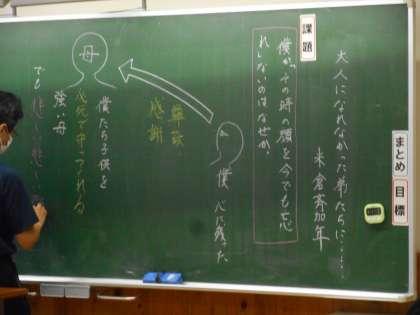 大人になれなかった弟たちに……
米倉斉加年
課題
僕が、その時の顔を今でも忘
れられないのはなぜか。
まとめ
目標
僕
心に残った
尊敬
感謝
母
僕たち子供を
必死で守ってくれる
強い母
でも